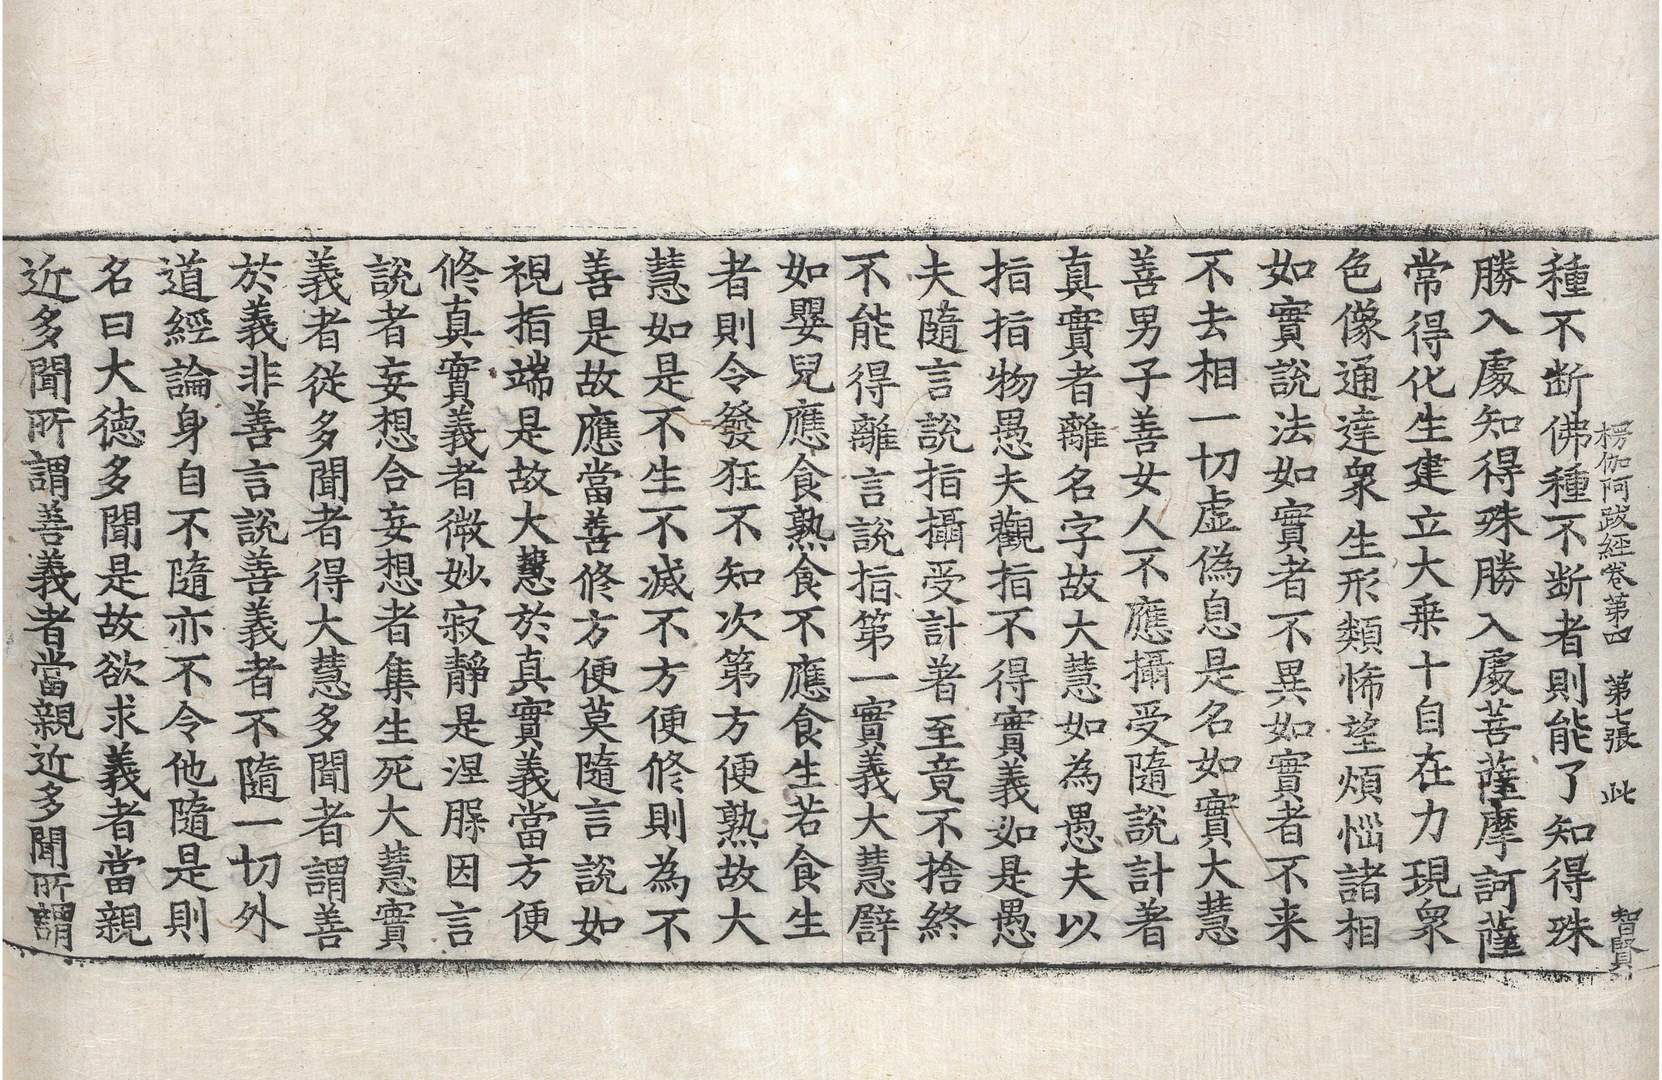 楞伽阿跋經卷第四　第七張　此　智賢
種不断佛種不断者則能了知得殊
勝入處知得殊勝入處菩薩摩訶薩
常得化生建立大乗十自在力現衆
色像通達衆生形類悕望煩惱諸相
如實說法如實者不異如實者不来
不去相一切虚偽息是名如實大慧
善男子善女人不應攝受隨說計著
真實者離名字故大慧如為愚夫以
指指物愚夫觀指不得實義如是愚
夫隨言說指攝受計著至竟不捨終
不能得離言說指第一實義大慧譬
如嬰兒應食熟食不應食生若食生
者則令發狂不知次第方便熟故大
慧如是不生不滅不方便修則為不
善是故應當善修方便莫隨言說如
視指端是故大慧於真實義當方便
修真實義者微妙寂靜是涅槃因言
說者妄想合妄想者集生死大慧實
義者從多聞者得大慧多聞者謂善
於義非善言說善義者不隨一切外
道經論身自不隨亦不令他隨是則
名曰大德多聞是故欲求義者當親
近多聞所謂善義者當親近多聞所謂